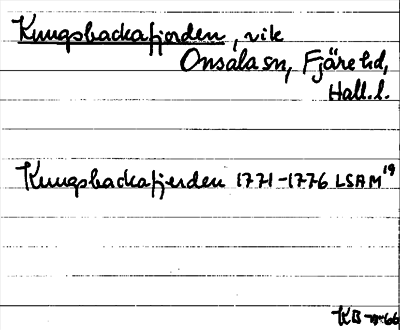 Kungsbackafjorden, vik
Onsala sn, Fjäre hd,
Hall. l.
Kungsbackafjerden 1771-1776 LSAM 19
KB